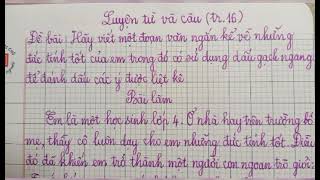 Luyện từ và câu (tr.16)
Đề bài: Hãy viết một đoạn văn ngắn kể về những
đức tính tốt của em trong đó có sử dụng dấu gạch ngang
để đánh dấu các ý được liệt kê
Bài làm
Em là một học sinh lớp 4. Ở nhà hay trên trường bố
mẹ, thầy cô luôn dạy cho em những đức tính tốt. Điều
đó đã khiến em trở thành một người con ngoan trò giỏi.